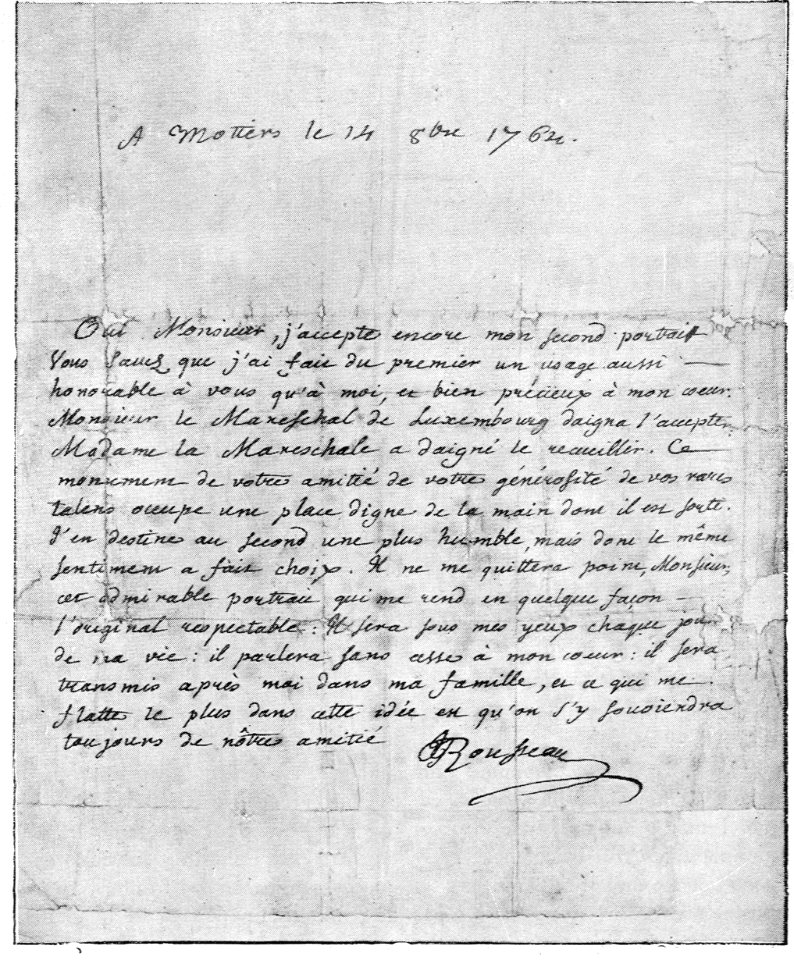 A Motiers le 14 8bre 1764.
Oui Monsieur, j'accepte encore mon second portrait
Vous savez que j'ai fait du premier un usage aussi —
honorable à vous qu'à moi, et bien précieux à mon coeur.
Monsieur le Mareschal de Luxembourg daigna l'accepter,
Madame la Mareschale a daigné le recueillir. Ce
monument de votre amitié de votre générosité de vos rares
talens occupe une place digne de la main dont il est sorti.
J'en destine au second une plus humble, mais dont le même
sentiment a fait choix. Il ne me quittera point, Monsieur,
cet admirable portrait qui me rend en quelque façon —
l'original respectable : Il sera sous mes yeux chaque jour
de ma vie : il parlera sans cesse à mon coeur : il sera
transmis après moi dans ma famille, et ce qui me
flatte le plus dans cette idée est qu'on s'y souviendra
toujours de nôtre amitié
JJRousseau